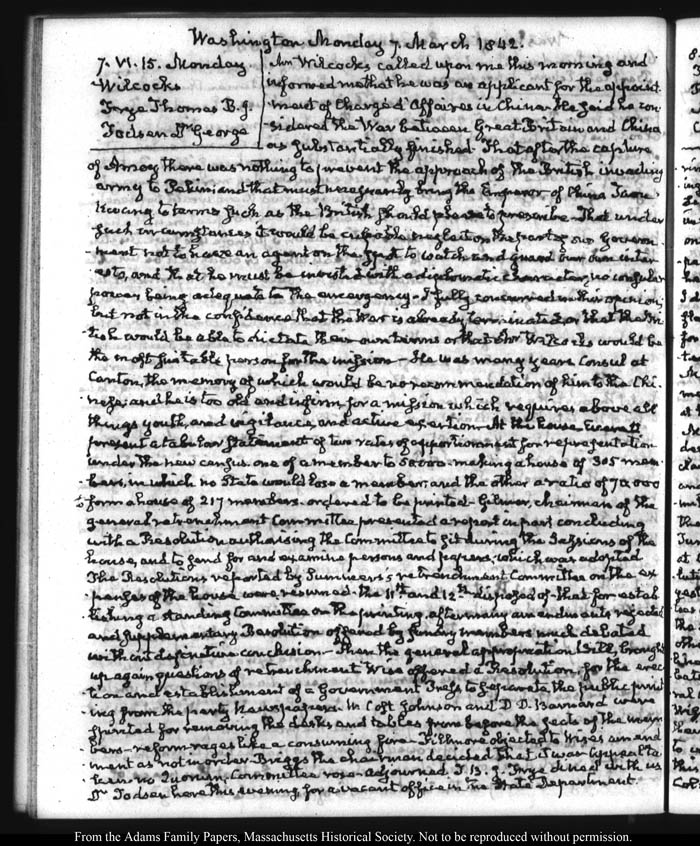 Washington Monday 7. March 1842.
7. VI. 15. Monday
Wilcocks
Frye Thomas B. J.
Todsen Dr. George
Mr Wilcocks called upon me this morning and
informed me that he was an applicant for the appoint-
ment of Chargé d'Affaires in China. He said he con-
sidered the War between Great-Britain and China
as substantially finished. That after the capture
of Amoy there was nothing to prevent the approach of the British invading
army to Pekin; and that must necessarily bring the Emperor of China Taou-
Kwang to terms such as the British should please to prescribe. That under
such circumstances it would be culpable neglect on the part of our Govern-
ment not to have an agent on the spot to watch and guard our own inter-
ests, and that he must be invested with a diplomatic character, no consular
power being adequate to the emergency. I fully concurred in this opinion;
but not in the confidence that the War is already terminated, or that the Bri-
tish would be able to dictate their own terms or that Mr Wilcocks would be
the most suitable person for the mission. He was many years Consul at
Canton, the memory of which would be no recommendation of him to the Chi-
nese; and he is too old and infirm for a mission which requires above all
things youth, and vigilance, and active exertion. At the house Everett
present a tabular statement of two rates of apportionment for representation
under the new census, one of a member to 50000 making a house of 305 mem-
bers, in which no State would lose a member; and the other a ratio of 70,000
to form a house of 217 members. ordered to be printed. Gilmer, chairman of the
general retrenchment Committee presented a report in part concluding
with a Resolution authorising the Committee to sit during the Sessions of the
house, and to send for and examine persons and papers; which was adopted.
The Resolutions reported by Summers's retrenchment Committee on the ex-
penses of the house were resumed. the 11th and 12th disposed of. that for estab-
lishing a standing Committee on the printing, after many amendments rejected
and supplementary Resolution offered by sundry members much debated
without definitive conclusion. Then the general appropriation bill, brought
up again questions of retrenchment. Wise offered a Resolution for the erec-
tion and establishment of a Government Press to separate the public print-
ing from the party Newspapers. W. Cost Johnson and D. D. Barnard were
for removing the desks and tables from before the seats of the mem-
bers. reform rages like a consuming fire. Fillmore objected to Wise's amend-
ment as not in order. Briggs the chairman decided that it was. appeal ta-
ken. no Quorum. Committee rose. adjourned. T. B. J. Frye dined with us
Dr Todsen here this evening, for a vacant office in the State Department.
From the Adams Family Papers, Massachusetts Historical Society. Not to be reproduced without permission.